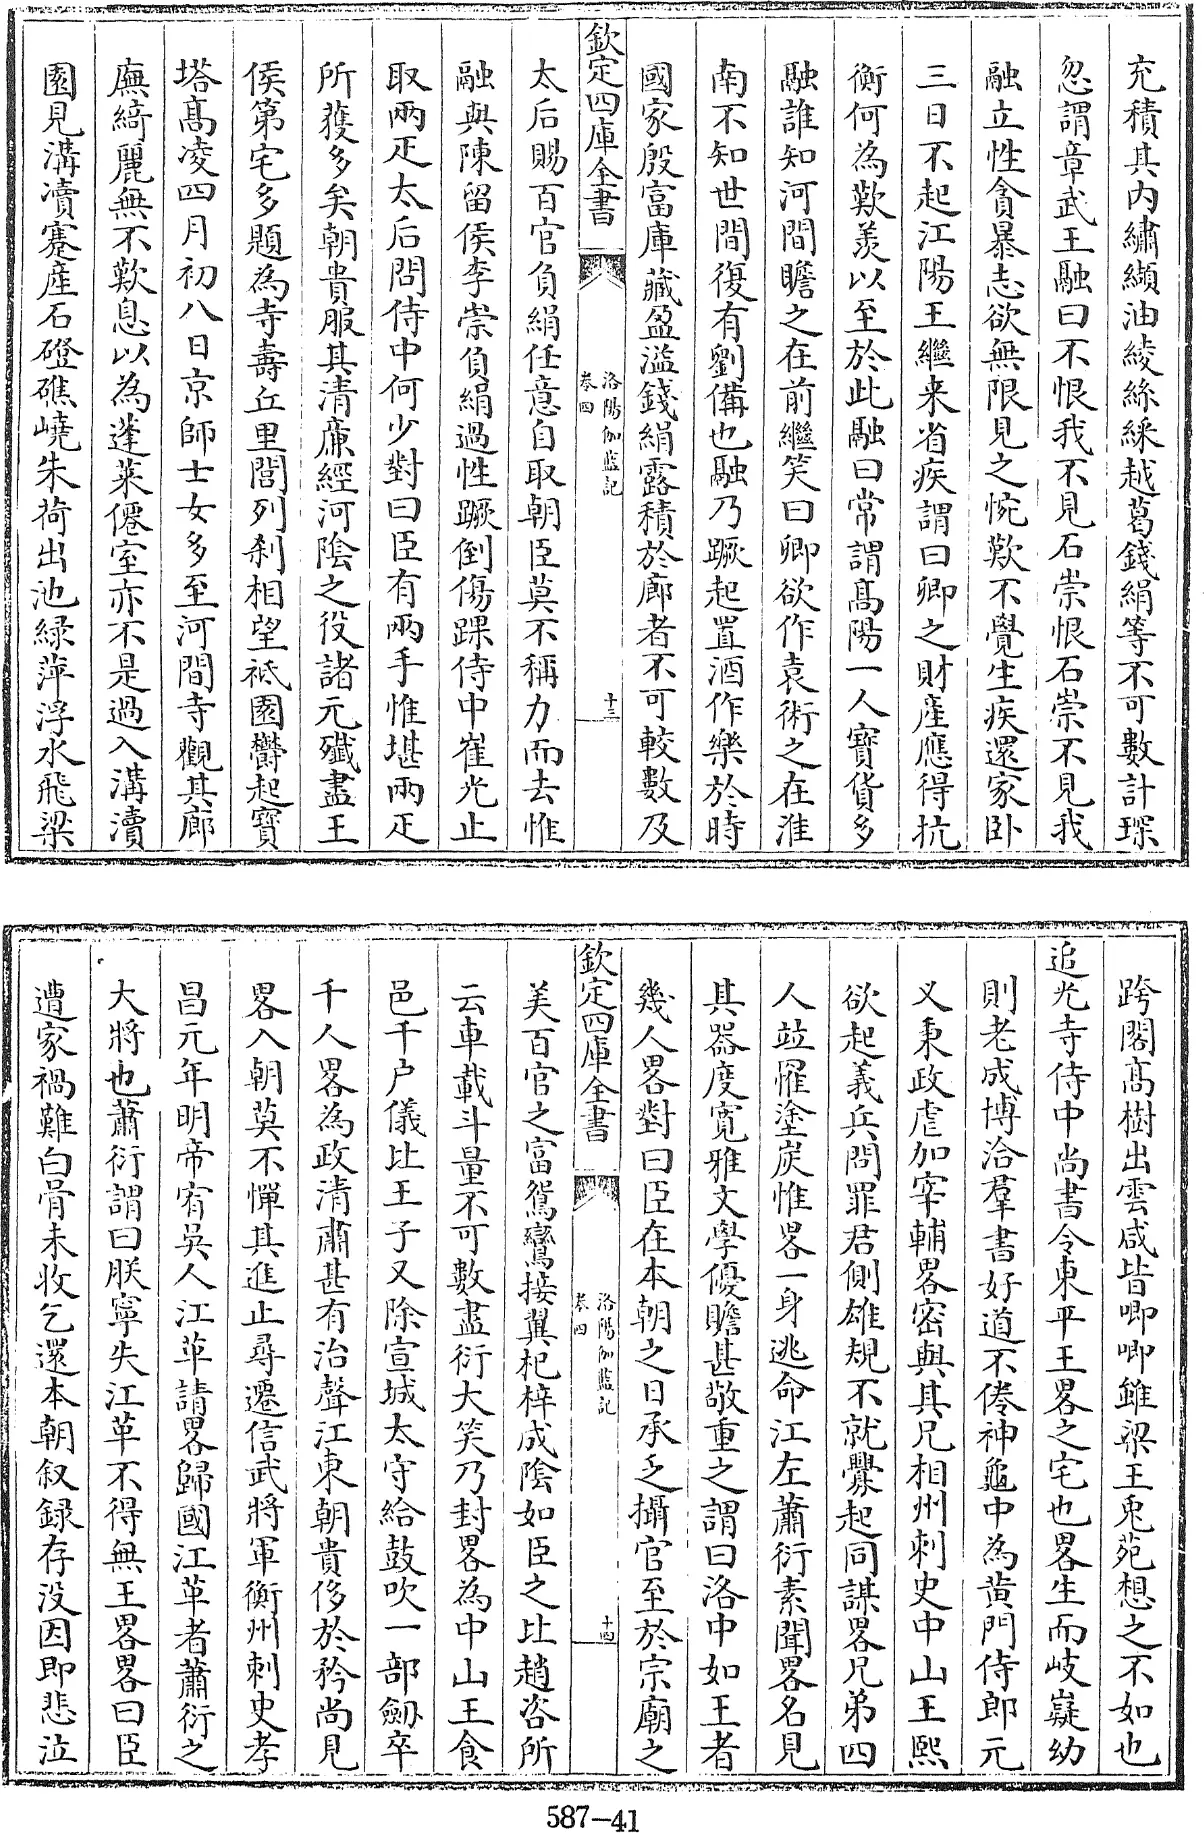 充積其内繡纈油綾絲綵越葛錢絹等不可數計琛
忽謂章武王融曰不恨我不見石崇恨石崇不見我
融立性貪暴志欲無限見之惋歎不覺生疾還家卧
三日不起江陽王繼来省疾謂曰卿之財產應得抗
衡何為歎羡以至於此融曰常謂髙陽一人寶貨多
融誰知河間瞻之在前繼笑曰卿欲作袁術之在淮
南不知世間復有劉備也融乃蹶起置酒作樂於時
國家殷富庫藏盈溢錢絹露積於廊者不可較數及
欽定四庫全書
洛陽伽藍記
卷四
十三
太后賜百官負絹任意自取朝臣莫不稱力而去惟
融與陳留侯李崇負絹過性蹶倒傷踝侍中崔光止
取兩疋太后問侍中何少對曰臣有兩手惟堪兩疋
所獲多矣朝貴服其清亷經河隂之役諸元殱盡王
侯第宅多題為寺壽丘里閭列刹相望祇園欝起寶
塔髙凌四月初八日京師士女多至河間寺觀其廊
廡綺麗無不歎息以為蓬萊僊室亦不是過入溝瀆
園見溝瀆蹇產石磴礁嶢朱荷出池緑萍浮水飛梁
跨閣髙樹出雲咸皆唧唧雖梁王兎苑想之不如也
追光寺侍中尚書令東平王畧之宅也畧生而岐嶷幼
則老成博洽羣書好道不倦神龜中為黄門侍郎元
乂秉政虐加宰輔畧密與其兄相州刺史中山王熙
欲起義兵問罪君側雄規不就釁起同謀畧兄弟四
人竝罹塗炭惟畧一身逃命江左蕭衍素聞畧名見
其器度寛雅文學優贍甚敬重之謂曰洛中如王者
幾人畧對曰臣在本朝之日承乏攝官至於宗廟之
欽定四庫全書
洛陽伽藍記
卷四
十四
美百官之富鴛鸞接翼杞梓成隂如臣之比趙咨所
云車載斗量不可數盡衍大笑乃封畧為中山王食
邑千户儀比王子又除宣城太守給鼓吹一部劒卒
千人畧為政清肅甚有治聲江東朝貴侈於矜尚見
畧入朝莫不憚其進止尋遷信武將軍衡州刺史孝
昌元年明帝宥吳人江革請畧歸國江革者蕭衍之
大將也蕭衍謂曰朕寧失江革不得無王畧畧曰臣
遭家禍難白骨未收乞還本朝叙録存没因即悲泣
587-41